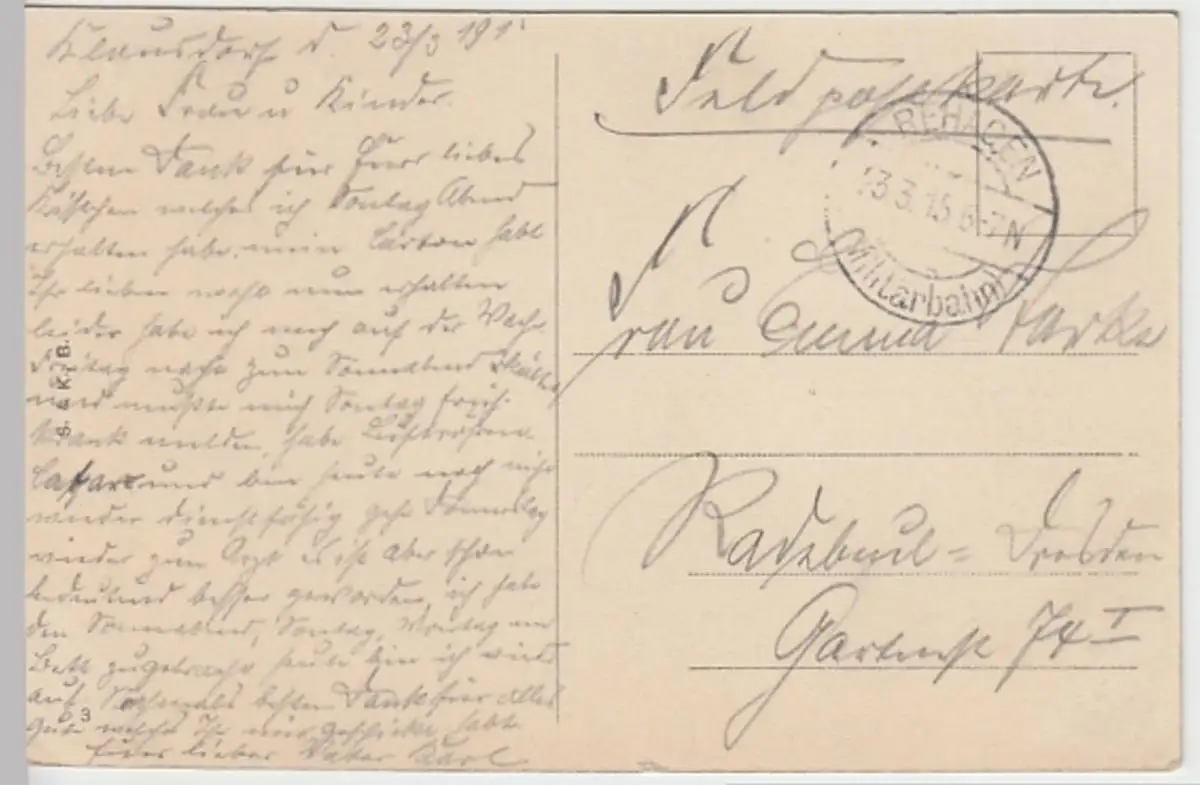 Klausdorf d. 23/3 191
Liebe Frau u Kinder.
Besten Dank für Euer liebes
Kistchen welches ich Sontag Abend
erhalten habe. mein Carton habt
Ihr lieben wohl nun erhalten
leider habe ich mich auf der Wache
Freitag nacht zum Sonnabend
und mußte mich Sontag früh
krank melden, habe Luftröhren
Catarr und bin heute noch nicht
wieder dienstfähig gehe Donnerstag
wieder zum Arzt es ist aber schon
bedeutend besser geworden, ich habe
den Sonnabend, Sontag, Montag im
Bett zugebracht heute bin ich wieder
auf. Nochmals besten Dank für alles
Gute welches Ihr mir geschickt habt.
Euer lieber Vater Karl
S. & K. B.
3
Feldpostkarte.
REHAGEN
23.3.15.6-7N
(Militärbahn)
Frau Emma
Radebeul = Dresden
Gartenst 74 I